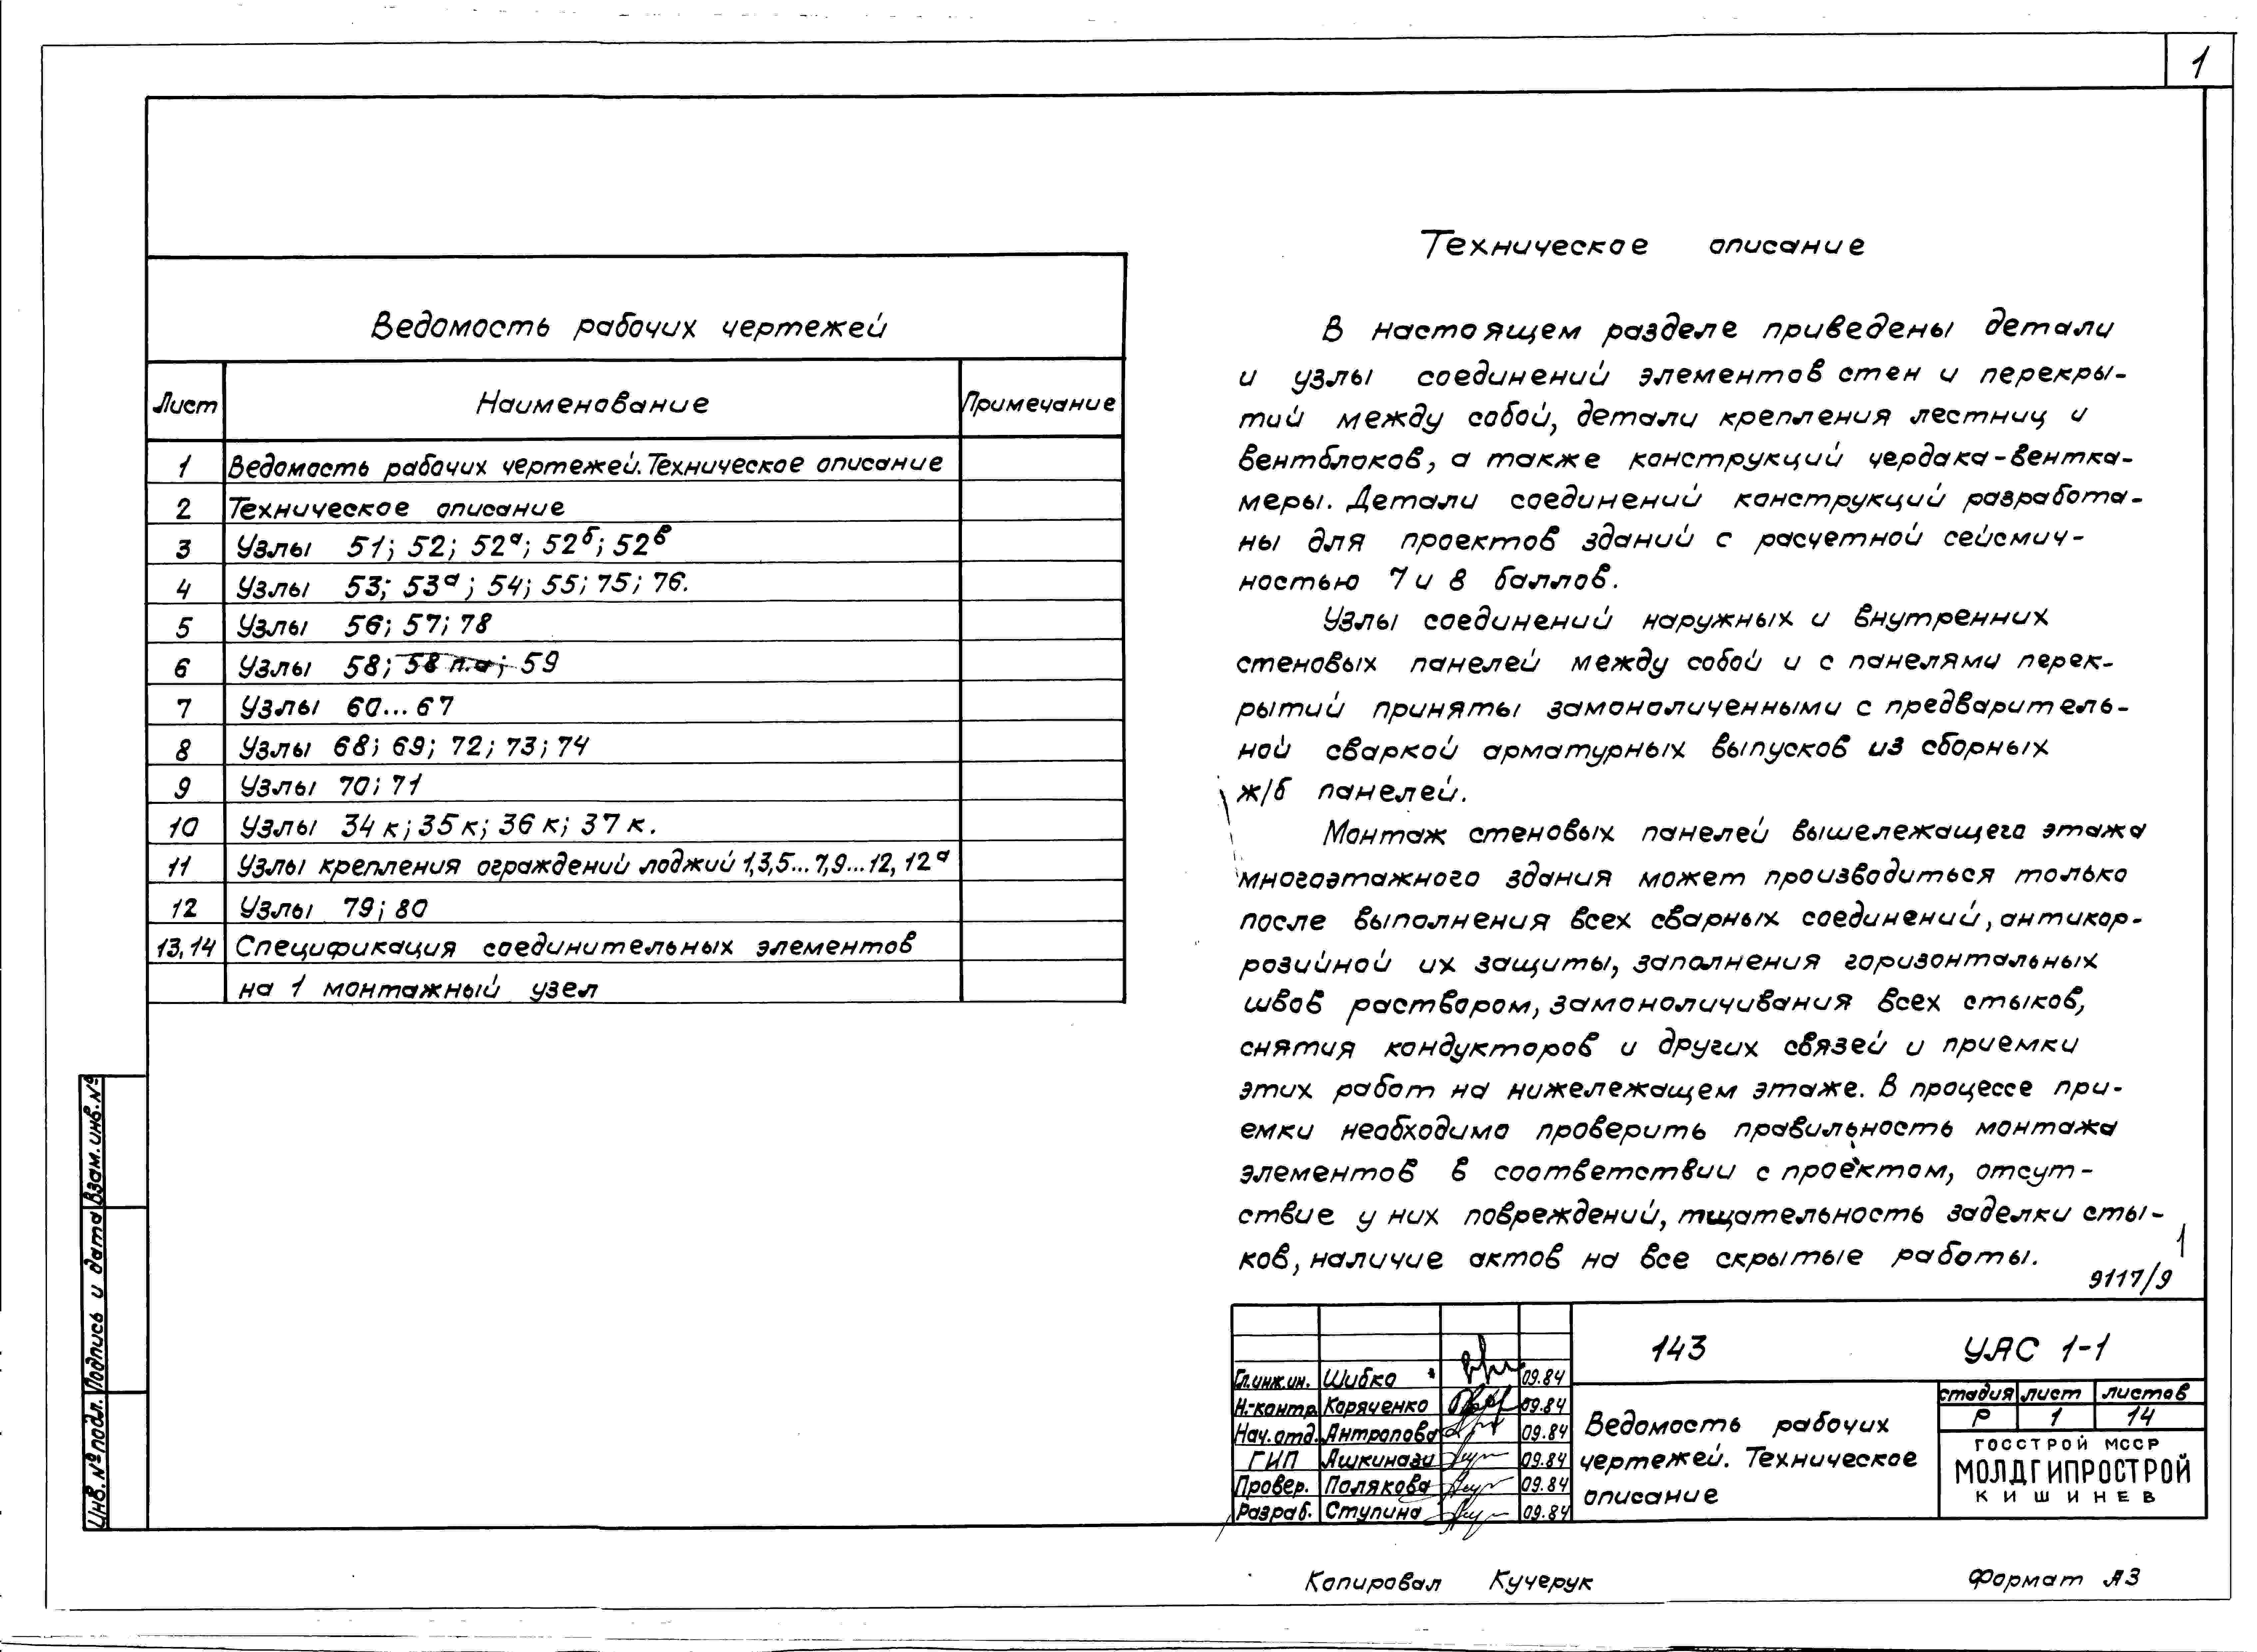 1
Ведомость рабочих чертежей
Лист Наименование Примечание
1 Ведомость рабочих чертежей. Техническое описание
2 Техническое описание
3 Узлы 51; 52; 52а; 52б; 52в
4 Узлы 53; 53а; 54; 55; 75; 76.
5 Узлы 56; 57; 78
6 Узлы 58; 58 п.а; 59
7 Узлы 60...67
8 Узлы 68; 69; 72; 73; 74
9 Узлы 70; 71
10 Узлы 34к; 35к; 36к; 37к.
11 Узлы крепления ограждений лоджий 1,3,5...7,9...12, 12а
12 Узлы 79; 80
13,14 Спецификация соединительных элементов
на 1 монтажный узел
Техническое описание
В настоящем разделе приведены детали
и узлы соединений элементов стен и перекры-
тий между собой, детали крепления лестниц и
вентблоков, а также конструкций чердака-вентка-
меры. Детали соединений конструкций разработа-
ны для проектов зданий с расчетной сейсмич-
ностью 7 и 8 баллов.
Узлы соединений наружных и внутренних
стеновых панелей между собой и с панелями перек-
рытий приняты замоноличенными с предваритель-
ной сваркой арматурных выпусков из сборных
ж/б панелей.
Монтаж стеновых панелей вышележащего этажа
многоэтажного здания может производиться только
после выполнения всех сварных соединений, антикор-
розийной их защиты, заполнения горизонтальных
швов раствором, замоноличивания всех стыков,
снятия кондукторов и других связей и приемки
этих работ на нижележащем этаже. В процессе при-
емки необходимо проверить правильность монтажа
элементов в соответствии с проектом, отсут-
ствие у них повреждений, тщательность заделки сты-
ков, наличие актов на все скрытые работы.
1
9117/9
Взам. инв. №
Подпись и дата
Инв. № подл.
143 УАС 1-1
Гл. инж. ин. Шибко 09.84
Н.-контр. Коряченко 09.84
Нач. отд. Антропова 09.84
ГИП Ашкинази 09.84
Провер. Полякова 09.84
Разраб. Ступина 09.84
Ведомость рабочих
чертежей. Техническое
описание
стадия лист листов
Р 1 14
ГОССТРОЙ МССР
МОЛДГИПРОСТРОЙ
КИШИНЕВ
Копировал Кучерук Формат А3